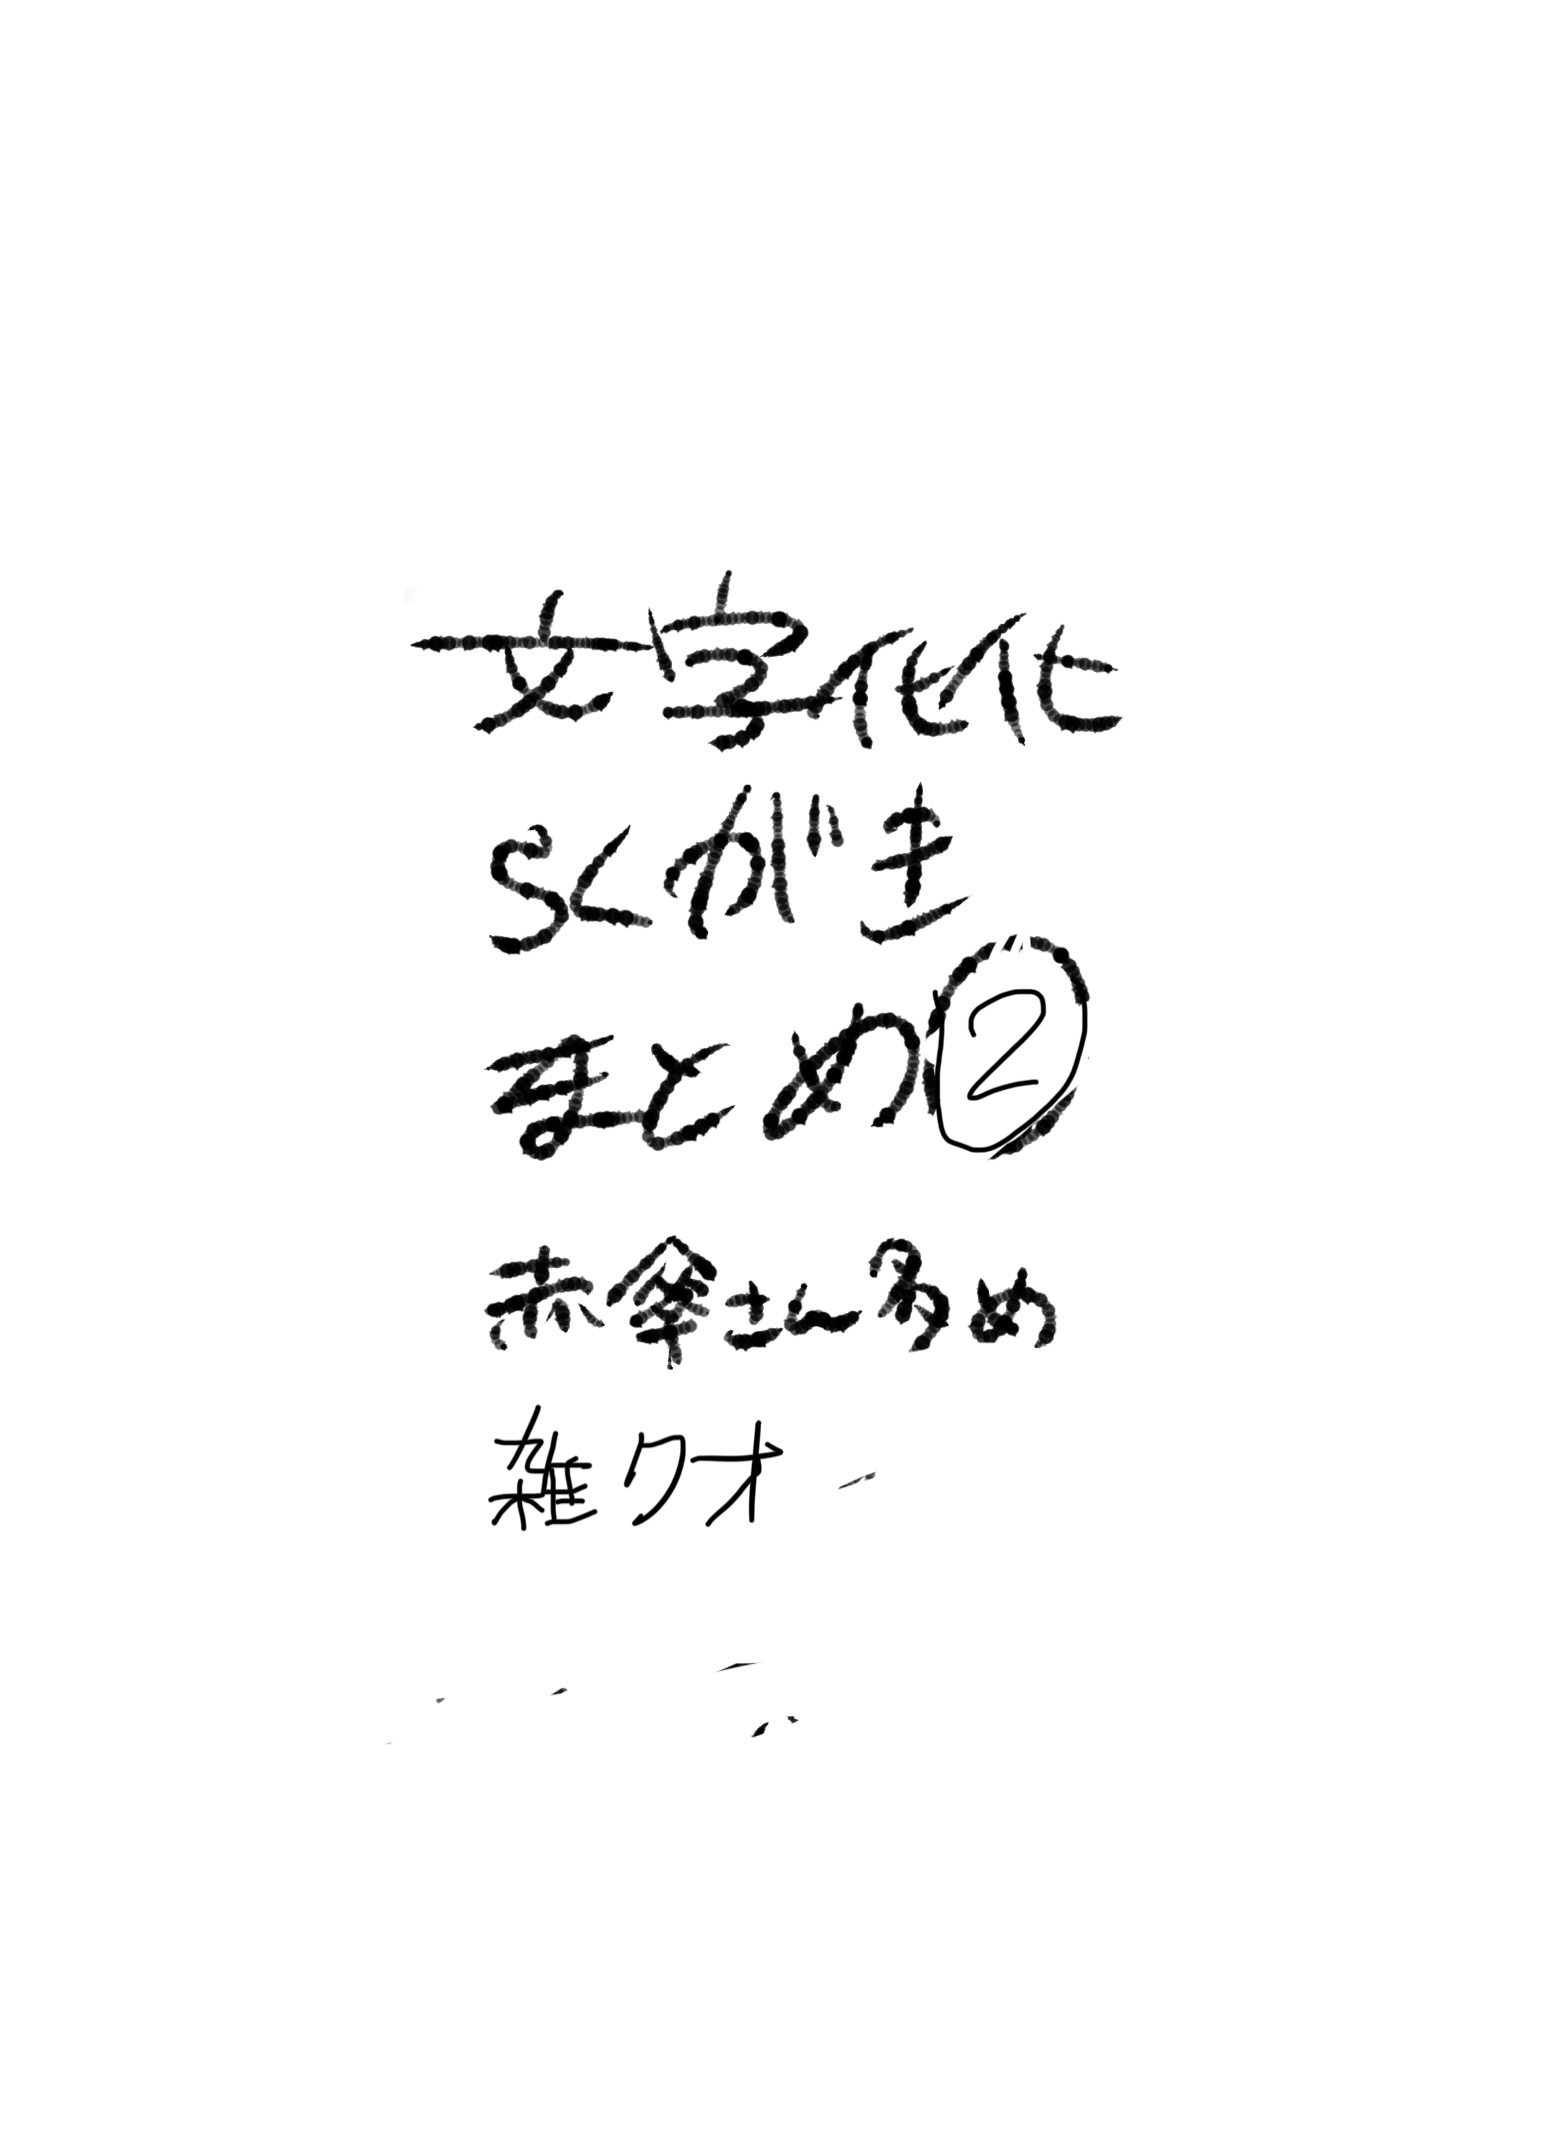 文字化化
らくがき
まとめ②
赤傘さん多め
雑クオ